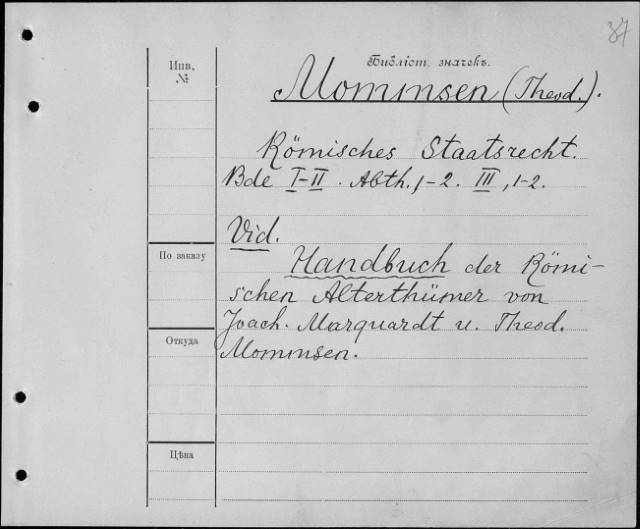 37
Инв.
№
Библіот. значекъ.
Mommsen (Theod.).
Römisches Staatsrecht.
Bde I-II. Abth. 1-2. III, 1-2.
Vid.
Handbuch der Römi-
schen Alterthümer von
Joach. Marquardt u. Theod.
Mommsen.
По заказу
Откуда
Цѣна